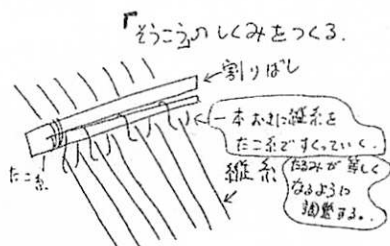 「そうこう」のしくみをつくる.
割りばし
一本おきに縦糸を
たこ糸ですくっていく.
たこ糸
縦糸
たるみが等しく
なるように
調整する.